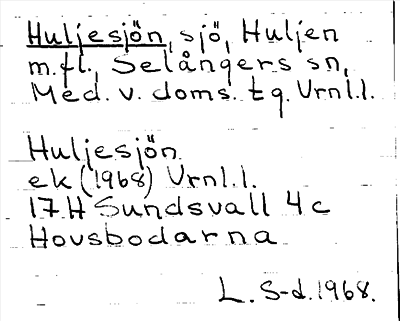 Huljesjön, sjö, Huljen
m.fl., Selångers sn,
Med. v. doms. tg. Vrnl.l.
Huljesjön
ek (1968) Vrnl.l.
17 H Sundsvall 4 c
Hovsbodarna
L. S-d. 1968.